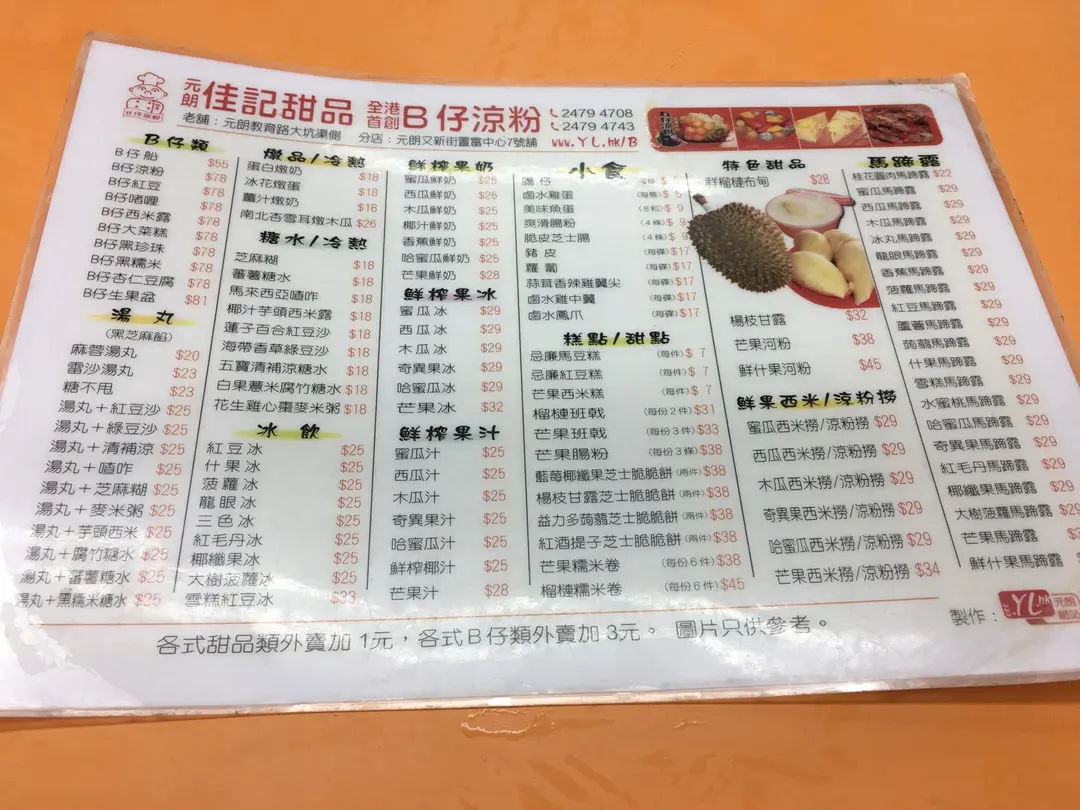 元朗佳記甜品 全港首創B仔涼粉 2479 4708
2479 4743
老舖：元朗教育路大坑渠側 分店：元朗又新街置富中心7號舖 www.YL.hk/B
B仔類
B仔船 $55
B仔涼粉 $78
B仔紅豆 $78
B仔啫喱 $78
B仔西米露 $78
B仔大菜糕 $78
B仔黑珍珠 $78
B仔黑糯米 $78
B仔杏仁豆腐 $78
B仔生果盆 $81
湯丸
(黑芝麻餡)
麻蓉湯丸 $20
雷沙湯丸 $23
糖不甩 $23
湯丸＋紅豆沙 $25
湯丸＋綠豆沙 $25
湯丸＋清補涼 $25
湯丸＋喳咋 $25
湯丸＋芝麻糊 $25
湯丸＋麥米粥 $25
湯丸＋芋頭西米 $25
湯丸＋腐竹糖水 $25
湯丸＋蕃薯糖水 $25
湯丸＋黑糯米糖水 $25
燉品/冷熱
蛋白燉奶 $18
冰花燉蛋 $18
薑汁燉奶 $18
南北杏雪耳燉木瓜 $26
糖水/冷熱
芝麻糊 $18
蕃薯糖水 $18
馬來西亞喳咋 $18
椰汁芋頭西米露 $18
蓮子百合紅豆沙 $18
海帶香草綠豆沙 $18
五寶清補涼糖水 $18
白果薏米腐竹糖水 $18
花生雞心棗麥米粥 $18
冰飲
紅豆冰 $25
什果冰 $25
菠蘿冰 $25
龍眼冰 $25
三色冰 $25
紅毛丹冰 $25
椰纖果冰 $25
大樹菠蘿冰 $25
雪糕紅豆冰 $33
鮮榨果奶
蜜瓜鮮奶 $25
西瓜鮮奶 $25
木瓜鮮奶 $25
椰汁鮮奶 $25
香蕉鮮奶 $25
哈蜜瓜鮮奶 $25
芒果鮮奶 $28
鮮榨果冰
蜜瓜冰 $29
西瓜冰 $29
木瓜冰 $29
奇異果冰 $29
哈蜜瓜冰 $29
芒果冰 $32
鮮榨果汁
蜜瓜汁 $25
西瓜汁 $25
木瓜汁 $25
奇異果汁 $25
哈蜜瓜汁 $25
鮮榨椰汁 $25
芒果汁 $28
小食
滷水雞蛋 (每隻) $ 5
美味魚蛋 (8粒) $ 9
爽滑腸粉 (4條) $ 9
脆皮芝士腸 (4條) $ 9
豬皮 (每碟) $17
蘿蔔 (每碟) $17
蒜茸香辣雞翼尖 (每碟) $17
滷水雞中翼 (每碟) $17
滷水鳳爪 (每碟) $17
糕點/甜點
忌廉馬豆糕 (每件) $ 7
忌廉紅豆糕 (每件) $ 7
芒果西米糕 (每件) $ 7
榴槤班戟 (每份2件) $31
芒果班戟 (每份3件) $33
芒果腸粉 (每份3條) $38
藍莓椰纖果芝士脆脆餅 (兩件) $38
楊枝甘露芝士脆脆餅 (兩件) $38
益力多蒟蒻芝士脆脆餅 (兩件) $38
紅酒提子芝士脆脆餅 (兩件) $38
芒果糯米卷 (每份6件) $38
榴槤糯米卷 (每份6件) $45
特色甜品
鮮榴槤布甸 $28
楊枝甘露 $32
芒果河粉 $38
鮮什果河粉 $45
鮮果西米/涼粉撈
蜜瓜西米撈/涼粉撈 $29
西瓜西米撈/涼粉撈 $29
木瓜西米撈/涼粉撈 $29
奇異果西米撈/涼粉撈 $29
哈蜜瓜西米撈/涼粉撈 $29
芒果西米撈/涼粉撈 $34
馬蹄露
桂花圓肉馬蹄露 $22
蜜瓜馬蹄露 $29
西瓜馬蹄露 $29
木瓜馬蹄露 $29
冰丸馬蹄露 $29
龍眼馬蹄露 $29
香蕉馬蹄露 $29
菠蘿馬蹄露 $29
紅豆馬蹄露 $29
蘆薈馬蹄露 $29
蒟蒻馬蹄露 $29
什果馬蹄露 $29
雪糕馬蹄露 $29
水蜜桃馬蹄露 $29
哈蜜瓜馬蹄露 $29
奇異果馬蹄露 $29
紅毛丹馬蹄露 $29
椰纖果馬蹄露 $29
大樹菠蘿馬蹄露
芒果馬蹄露
鮮什果馬蹄露
各式甜品類外賣加 1元，各式B仔類外賣加 3元。 圖片只供參考。
製作：